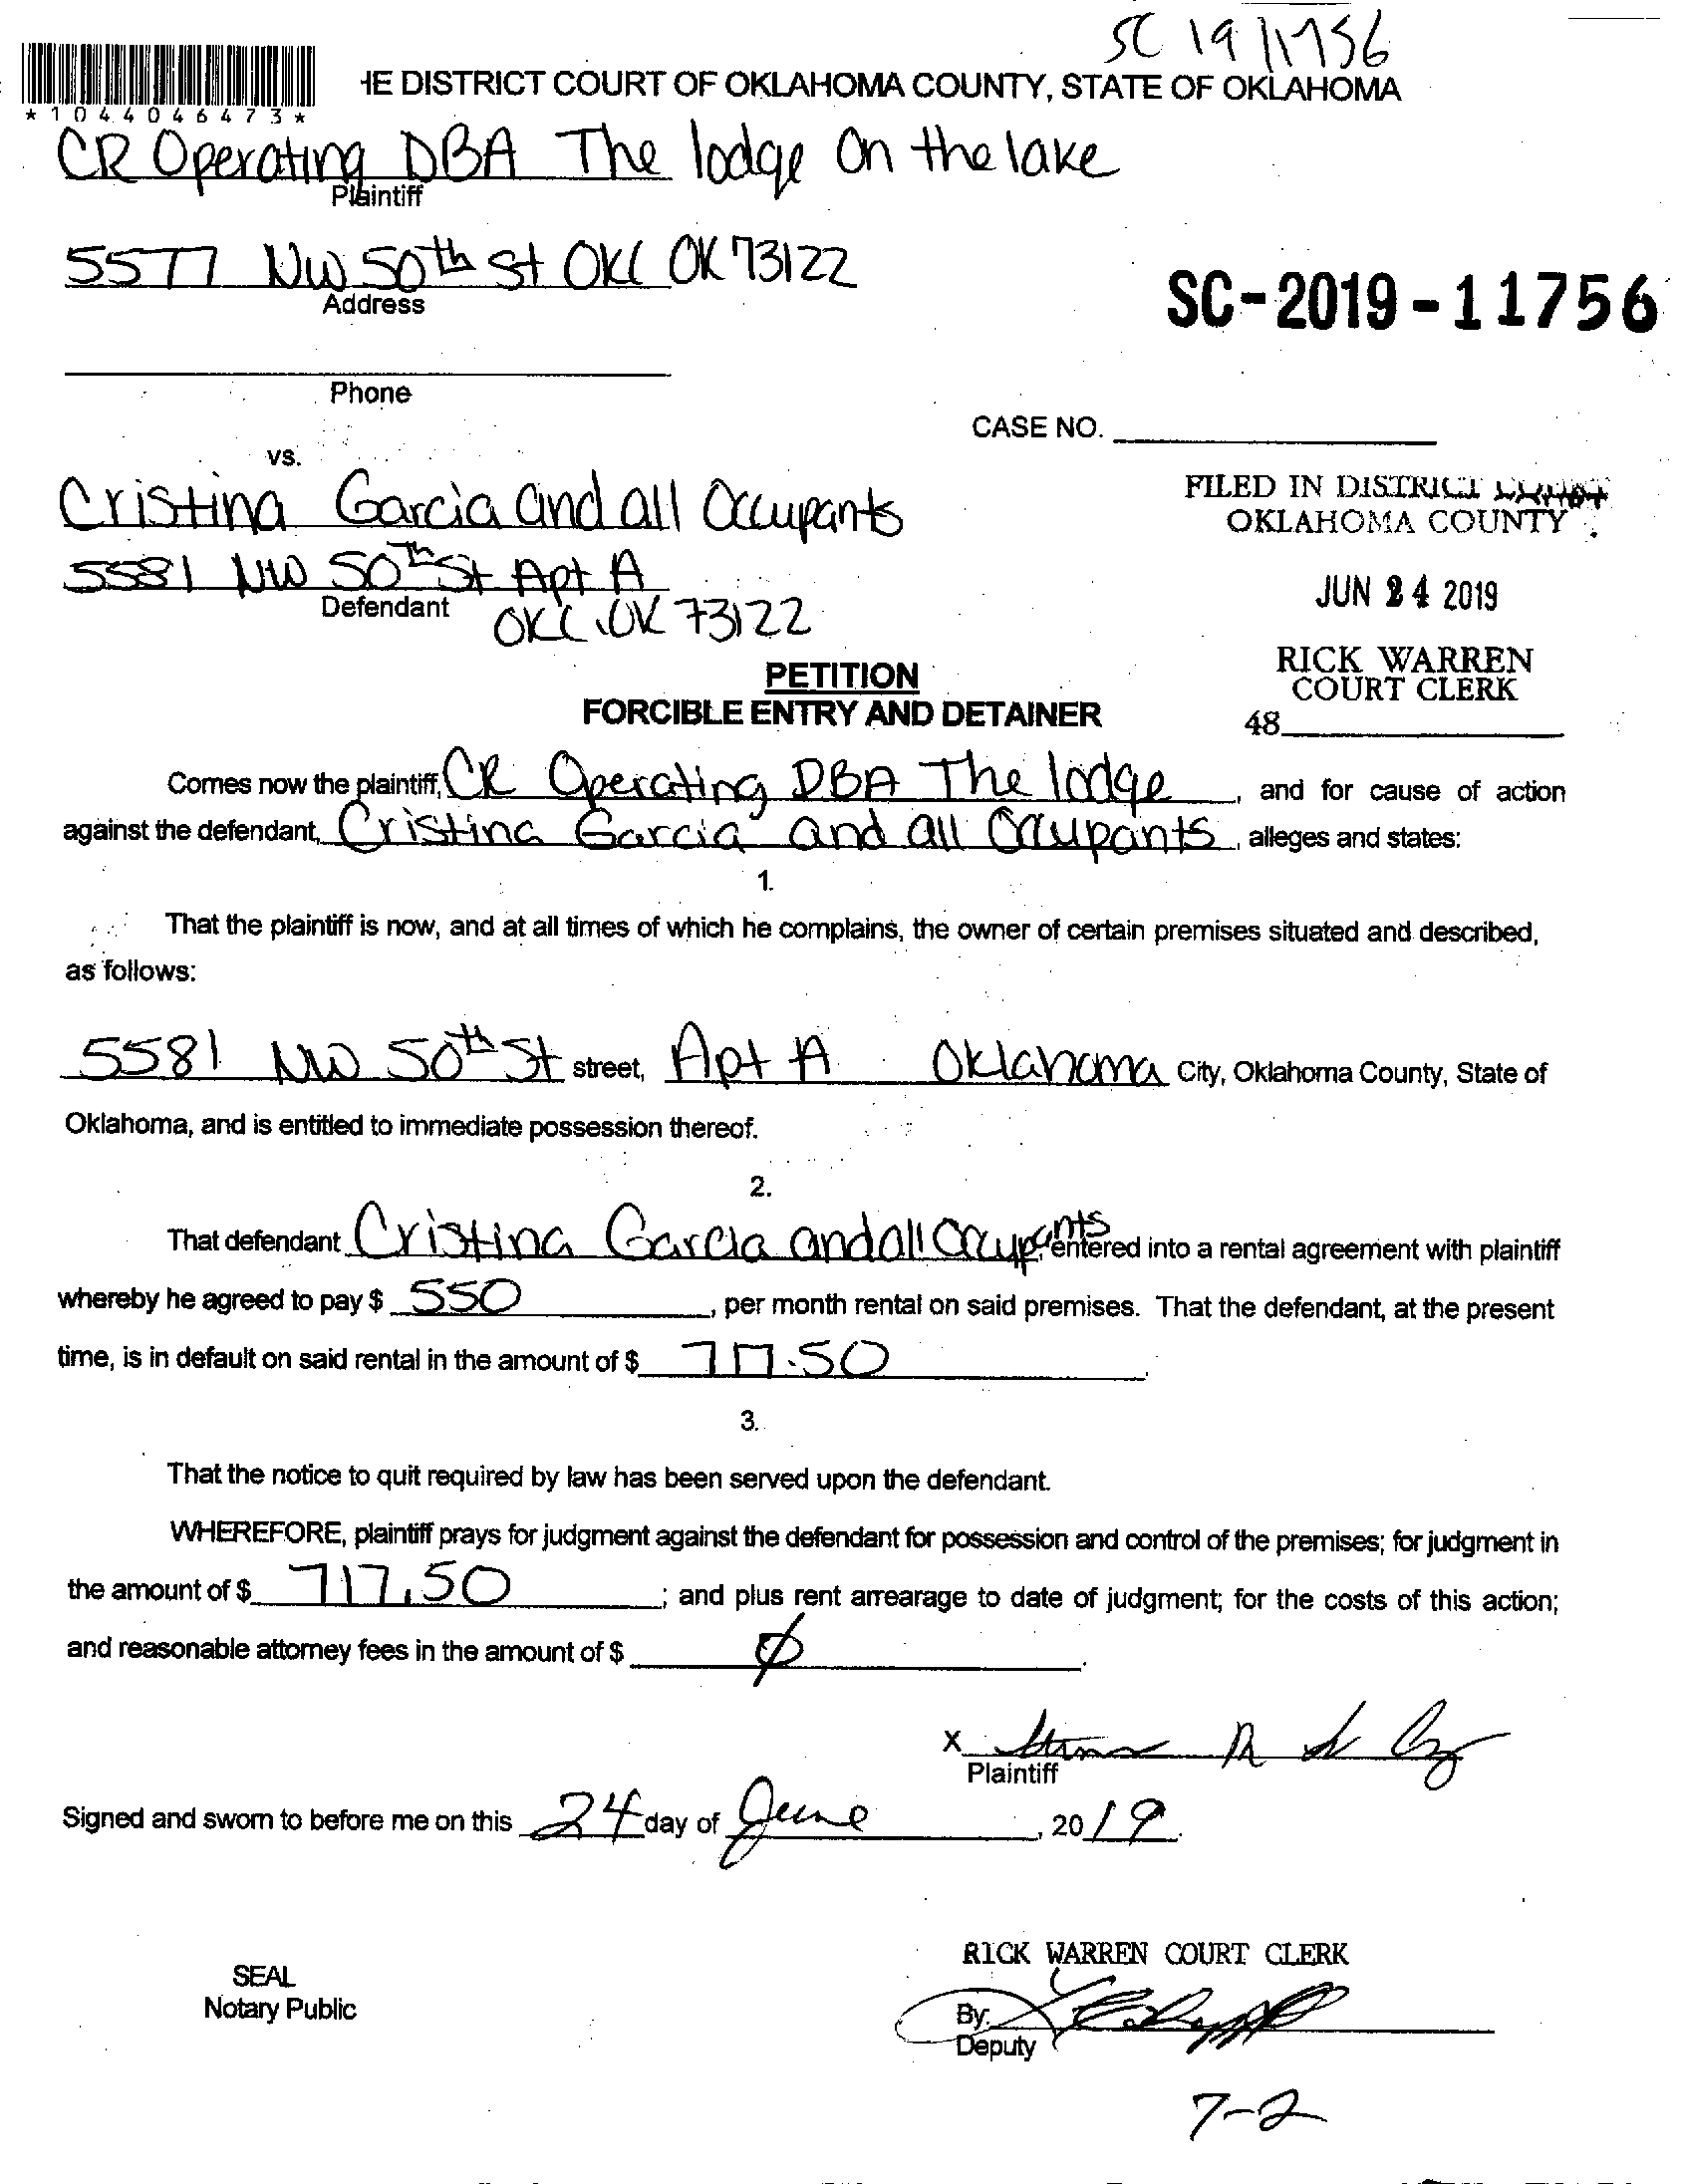 SC 19 11756
HE DISTRICT COURT OF OKLAHOMA COUNTY, STATE OF OKLAHOMA
*1044046473*
CR Operating DBA The lodge On the lake
Plaintiff
5577 NW 50th St OKC OK 73122
Address
SC-2019-11756
Phone
CASE NO.
vs.
Cristina Garcia and all Occupants
FILED IN DISTRICT COURT
OKLAHOMA COUNTY
5581 NW 50th St Apt A
Defendant
OKC OK 73122
JUN 24 2019
RICK WARREN
COURT CLERK
48
PETITION
FORCIBLE ENTRY AND DETAINER
Comes now the plaintiff, CR Operating DBA The lodge, and for cause of action
against the defendant, Cristina Garcia and all Occupants, alleges and states:
1.
That the plaintiff is now, and at all times of which he complains, the owner of certain premises situated and described,
as follows:
5581 NW 50th St street, Apt A Oklahoma City, Oklahoma County, State of
Oklahoma, and is entitled to immediate possession thereof.
2.
That defendant Cristina Garcia and all Occupants entered into a rental agreement with plaintiff
whereby he agreed to pay $ 550, per month rental on said premises. That the defendant, at the present
time, is in default on said rental in the amount of $ 717.50.
3.
That the notice to quit required by law has been served upon the defendant.
WHEREFORE, plaintiff prays for judgment against the defendant for possession and control of the premises; for judgment in
the amount of $ 717.50; and plus rent arrearage to date of judgment; for the costs of this action;
and reasonable attorney fees in the amount of $ ϕ.
X
Plaintiff
Signed and sworn to before me on this 24 day of June, 2019.
RICK WARREN COURT CLERK
SEAL
Notary Public
By:
Deputy
7-2